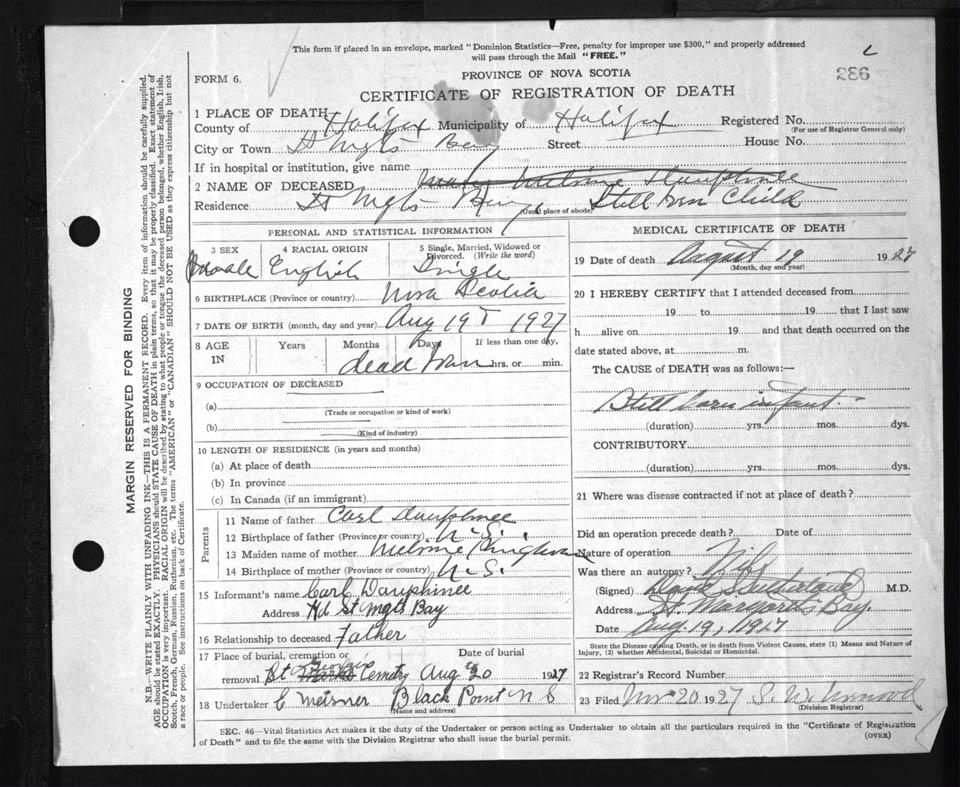 This form if placed in an envelope, marked "Dominion Statistics—Free, penalty for improper use $300," and properly addressed
will pass through the Mail "FREE."
FORM 6.
PROVINCE OF NOVA SCOTIA
286
CERTIFICATE OF REGISTRATION OF DEATH
1 PLACE OF DEATH
County of Halifax Municipality of Halifax Registered No.
(For use of Registrar General only)
City or Town St Mgts Bay Street House No.
If in hospital or institution, give name
2 NAME OF DECEASED Dauphinee
Residence St Mgts Bay (Usual place of abode) Still born Child
PERSONAL AND STATISTICAL INFORMATION
3 SEX 4 RACIAL ORIGIN 5 Single, Married, Widowed or Divorced. (Write the word)
English Single
6 BIRTHPLACE (Province or country) Nova Scotia
7 DATE OF BIRTH (month, day and year) Aug 19 1927
8 AGE IN Years Months Days If less than one day,
dead born hrs. or min.
9 OCCUPATION OF DECEASED
(a)
(Trade or occupation or kind of work)
(b)
(Kind of industry)
10 LENGTH OF RESIDENCE (in years and months)
(a) At place of death
(b) In province
(c) In Canada (if an immigrant)
Parents
11 Name of father Carl Dauphinee
12 Birthplace of father (Province or country) N.S.
13 Maiden name of mother
14 Birthplace of mother (Province or country) N.S.
15 Informant's name Carl Dauphinee
Address Hd St Mgts Bay
16 Relationship to deceased Father
17 Place of burial, cremation or Date of burial
removal St Cemetry Aug 20 1927
18 Undertaker C Meisner Black Point N S
(Name and address)
MEDICAL CERTIFICATE OF DEATH
19 Date of death August 19 1927
(Month, day and year)
20 I HEREBY CERTIFY that I attended deceased from
19 to 19 that I last saw
h alive on 19 and that death occurred on the
date stated above, at m.
The CAUSE of DEATH was as follows:—
Still born infant
(duration) yrs. mos. dys.
CONTRIBUTORY
(duration) yrs. mos. dys.
21 Where was disease contracted if not at place of death?
Did an operation precede death? Date of
Nature of operation
Was there an autopsy?
(Signed) M.D.
Address St. Margarets Bay
Date Aug 19, 1927
State the Disease causing Death, or in death from Violent Causes, state (1) Means and Nature of
Injury, (2) whether Accidental, Suicidal or Homicidal.
22 Registrar's Record Number
23 Filed 20 1927
(Division Registrar)
SEC. 46—Vital Statistics Act makes it the duty of the Undertaker or person acting as Undertaker to obtain all the particulars required in the "Certificate of Registration
of Death" and to file the same with the Division Registrar who shall issue the burial permit.
(OVER)
MARGIN RESERVED FOR BINDING
N.B.—WRITE PLAINLY WITH UNFADING INK—THIS IS A PERMANENT RECORD. Every item of information should be carefully supplied.
AGE should be stated EXACTLY. PHYSICIANS should STATE CAUSE OF DEATH in plain terms, so that it may be properly classified. Exact statement of
OCCUPATION is very important. RACIAL ORIGIN will be described by stating to what people or tongue the deceased person belonged, whether English, Irish,
Scotch, French, German, Russian, Ruthenian, etc. The terms "AMERICAN" or "CANADIAN" SHOULD NOT BE USED as they express citizenship but not
a race or people. See instructions on back of Certificate.